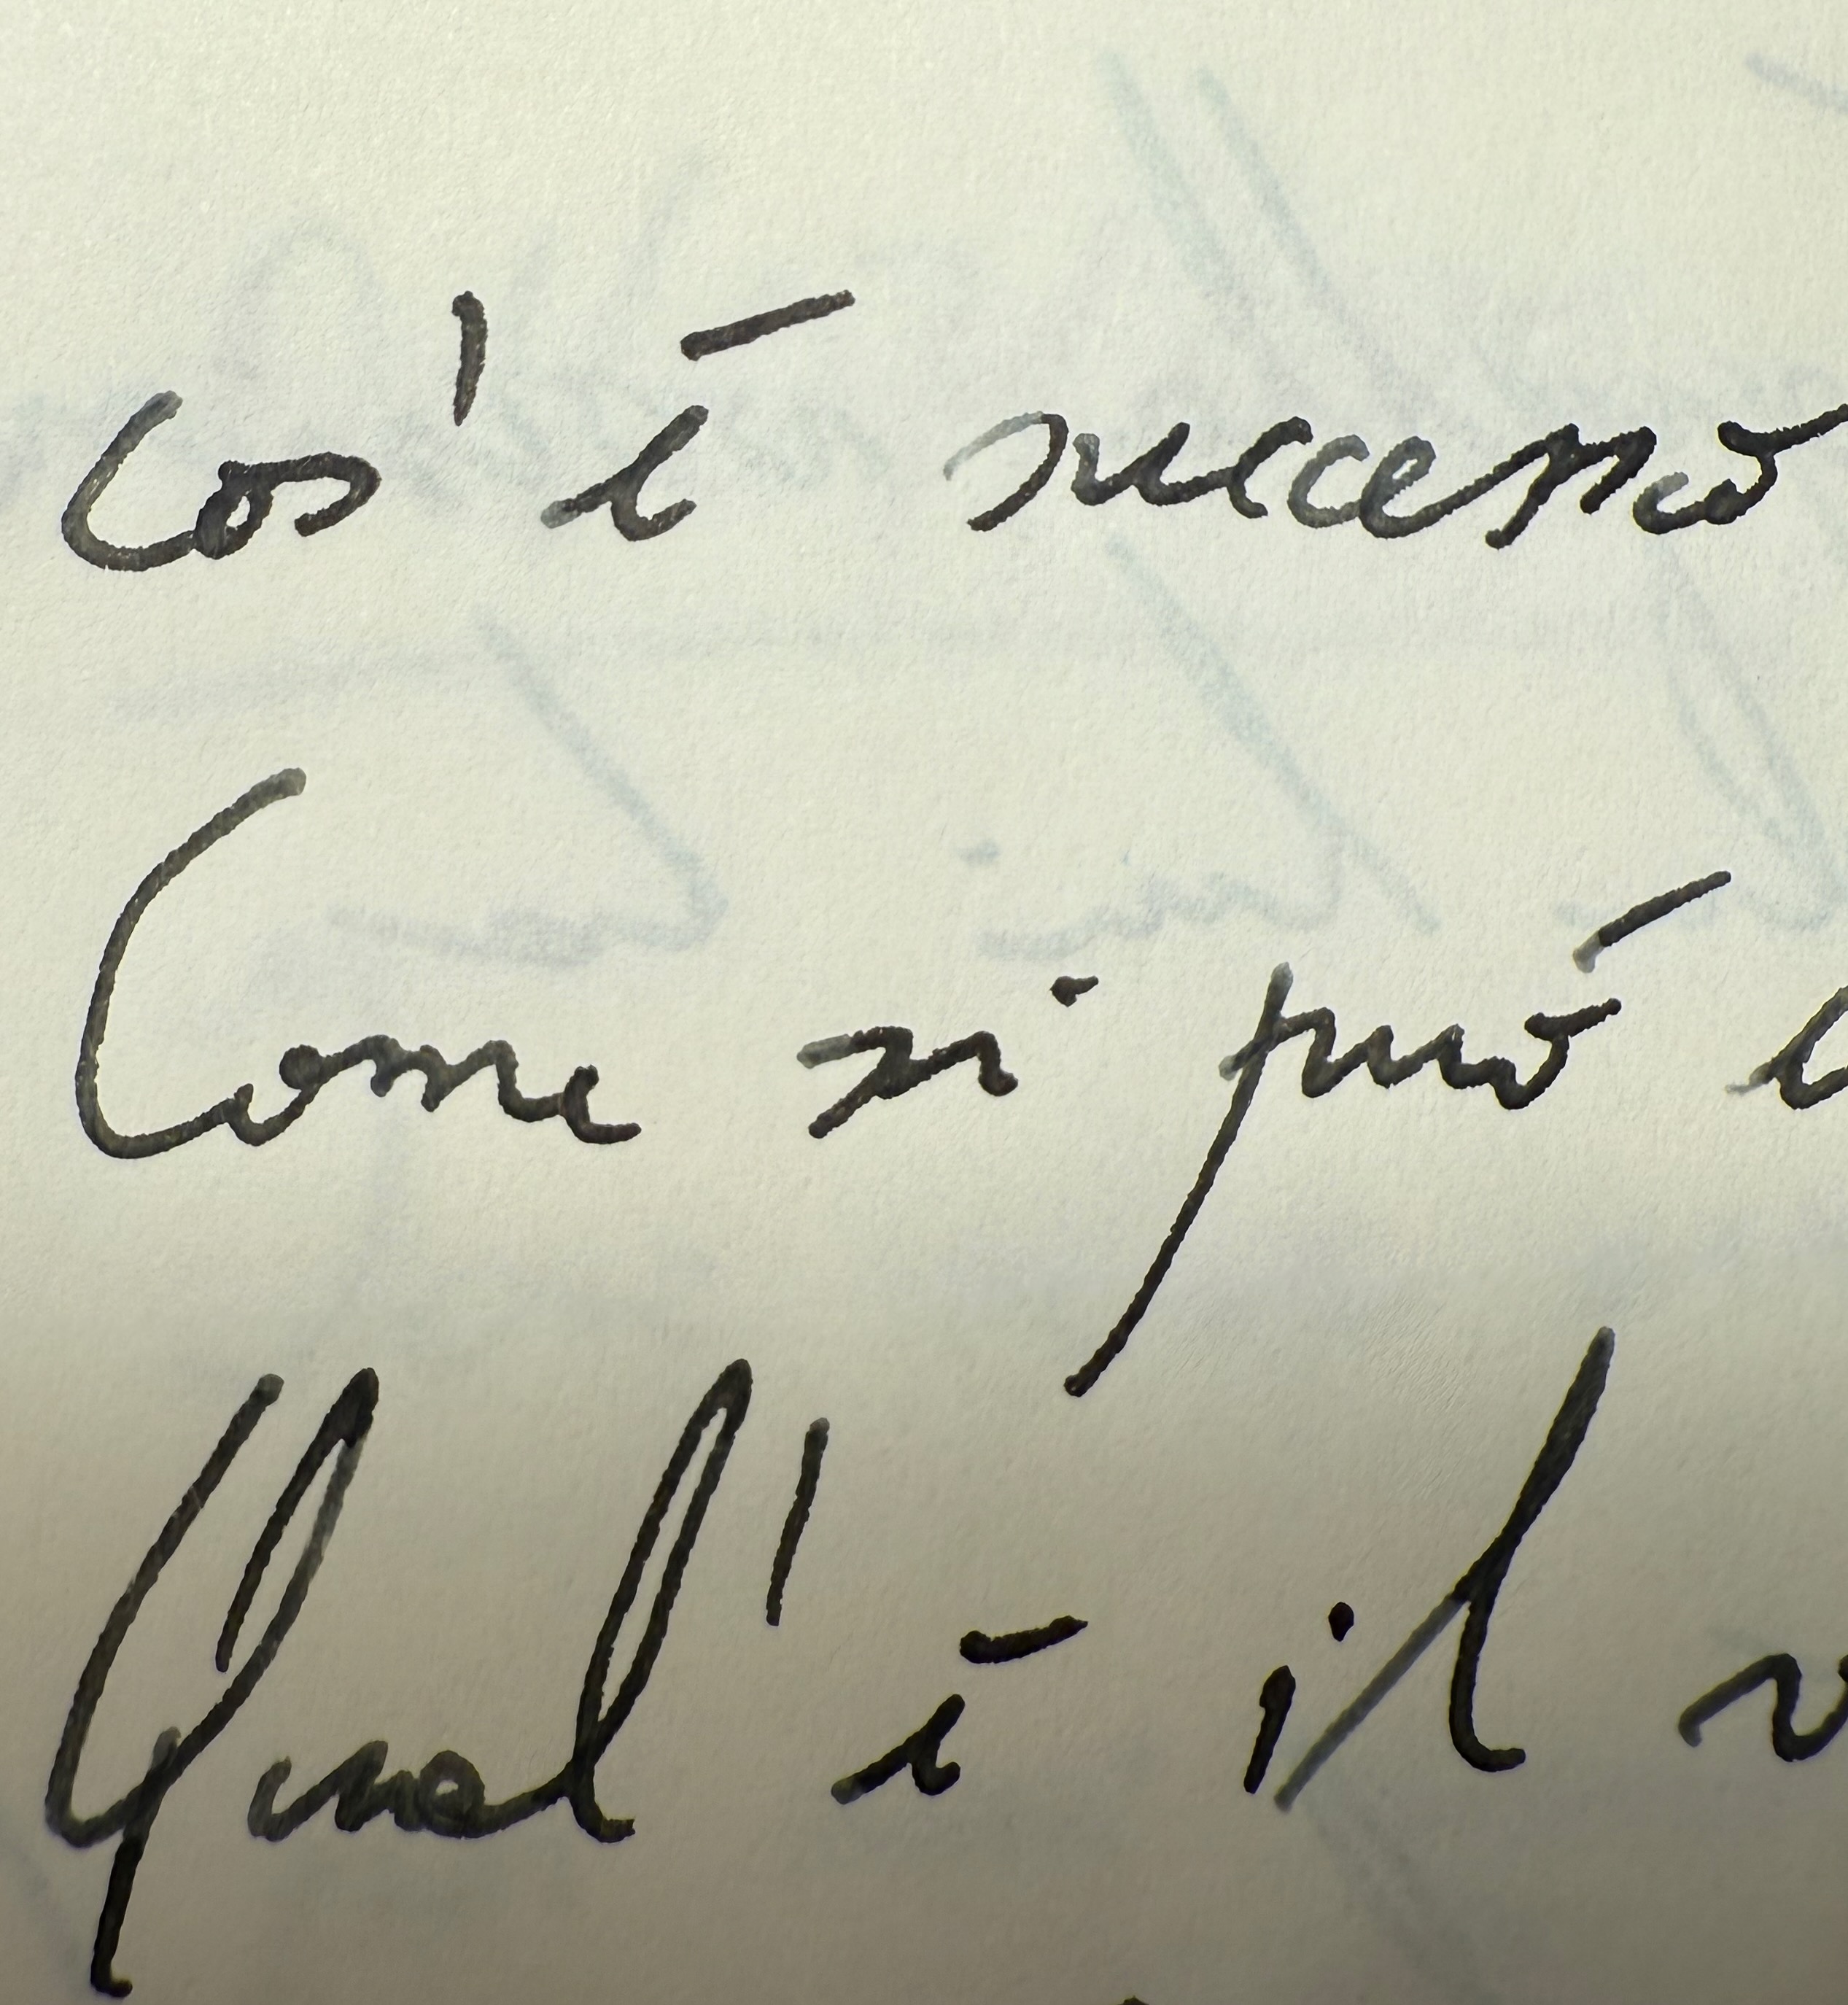 Cos'è successo
Come si può
Qual'è il